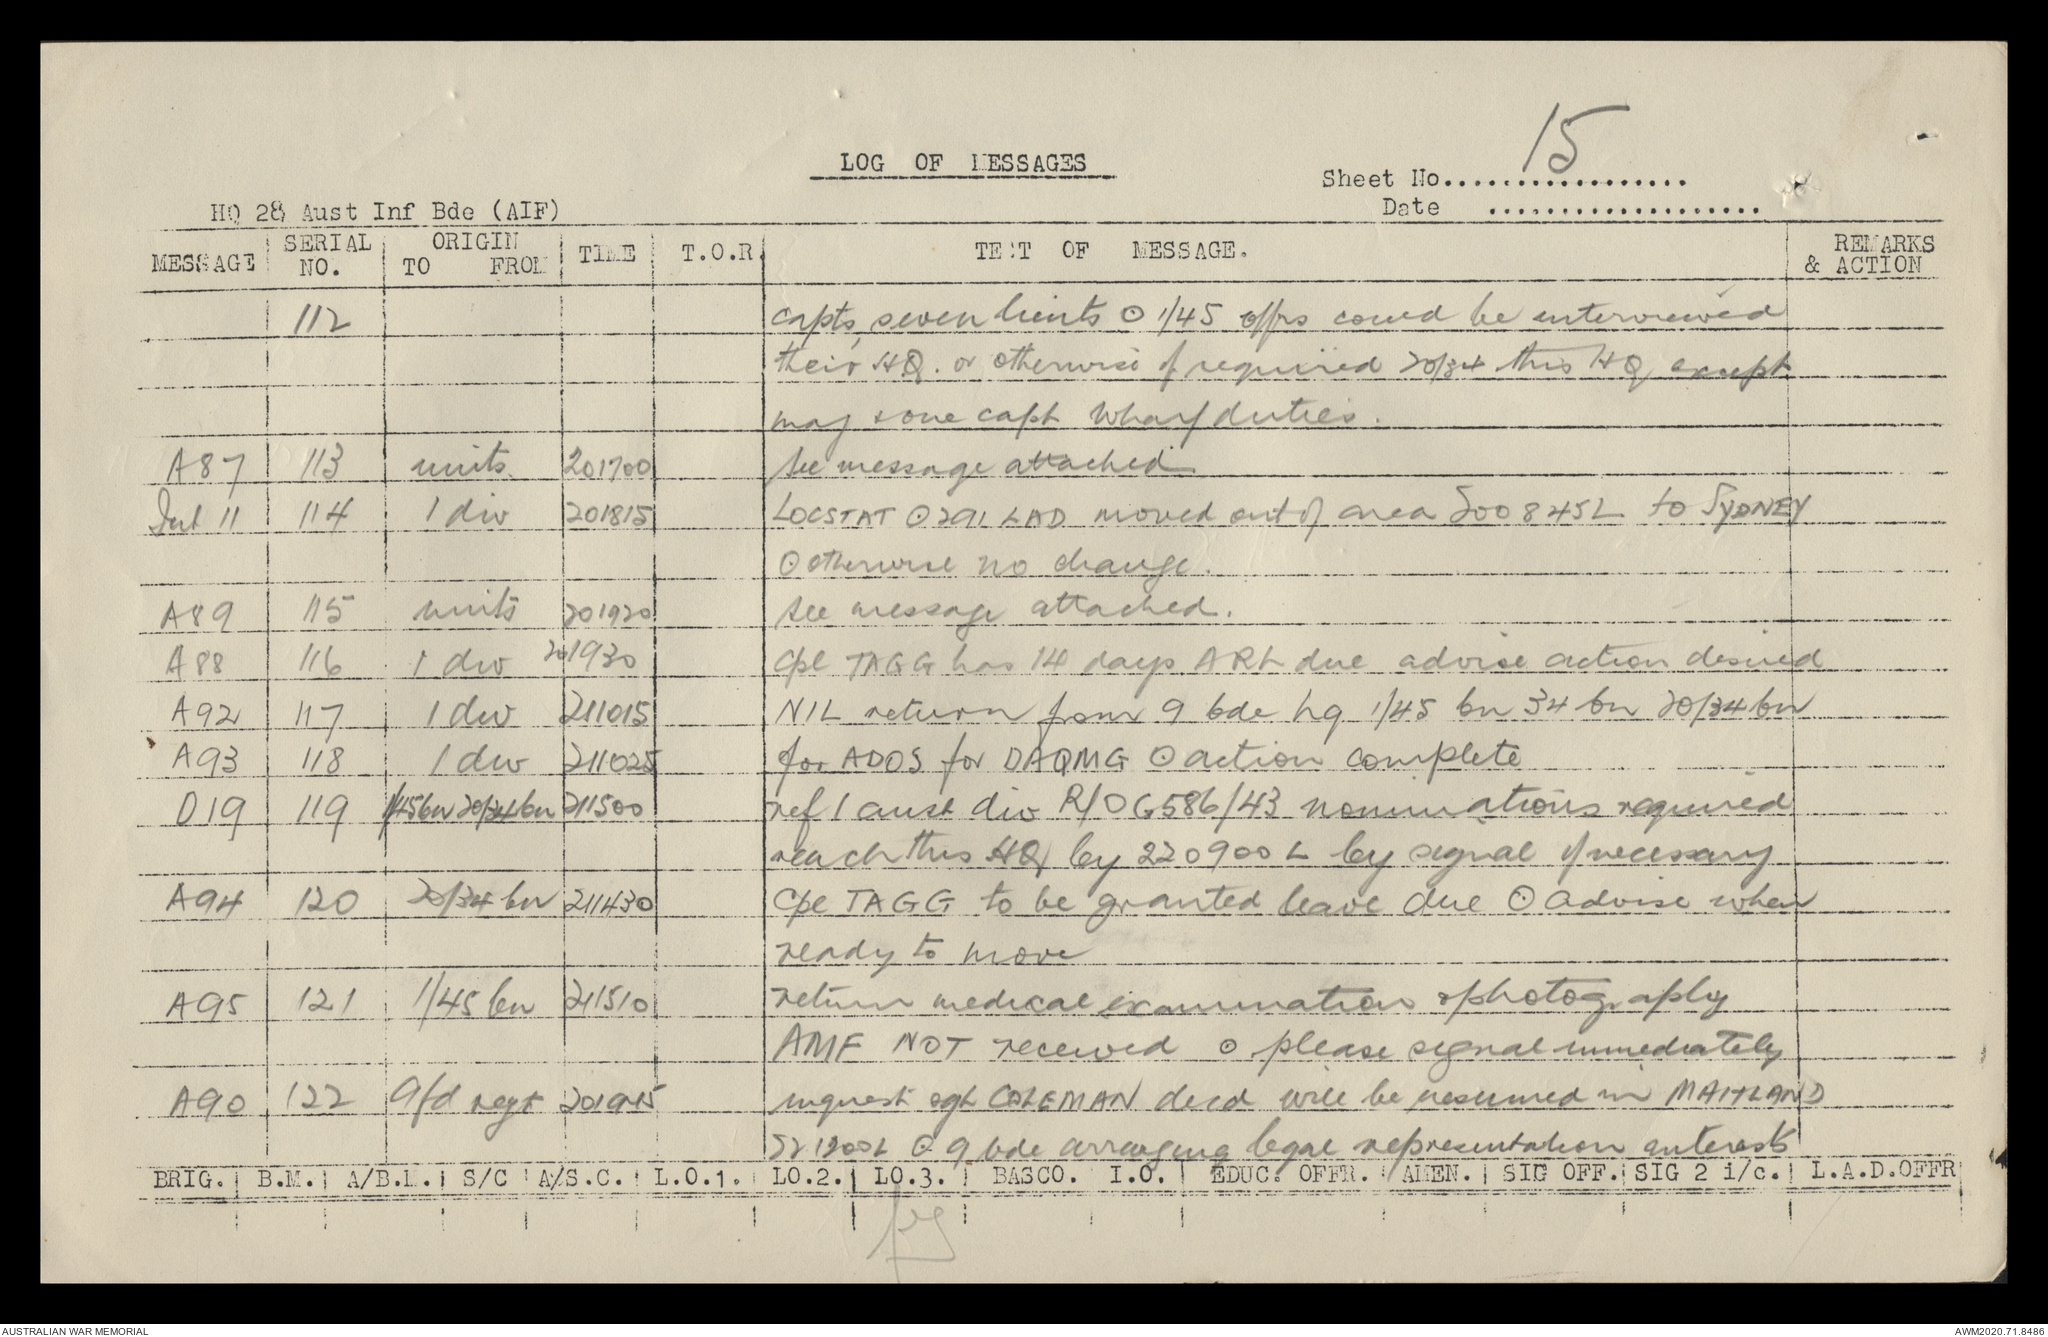 15
LOG OF MESSAGES
Sheet No..................
Date ...................
HQ 28 Aust Inf Bde (AIF)
MESSAGE SERIAL NO. ORIGIN TO FROM TIME T.O.R. TEXT OF MESSAGE. REMARKS & ACTION
112 capts, seven lieuts ⊙ 1/45 offrs could be interviewed
their HQ. or otherwise if required 20/34 this HQ except
maj & one capt wharf duties.
A87 113 units. 201700 see message attached
Int 11 114 1 div 201815 LOCSTAT ⊙ 291 LAD moved out of area 200845L to SYDNEY
⊙ otherwise no change.
A89 115 units 201920 see message attached.
A88 116 1 div 201930 Cpl TAGG has 14 days ARL due advise action desired
A92 117 1 div 211015 NIL return from 9 bde hq 1/45 bn 34 bn 20/34 bn
A93 118 1 div 211025 for ADOS for DAQMG ⊙ action complete
O19 119 1/45 bn 20/34 bn 211500 ref 1 aust div R/O G586/43 nominations required
reach this HQ by 220900L by signal if necessary
A94 120 20/34 bn 211430 Cpl TAGG to be granted leave due ⊙ advise when
ready to move
A95 121 1/45 bn 211510 return medical examination & photography
AMF NOT received ⊙ please signal immediately
A90 122 9 fd regt 201945 inquest sgt COLEMAN decd will be resumed in MAITLAND
221200L ⊙ 9 bde arranging legal representation interests
BRIG. B.M. A/B.M. S/C A/S.C. L.O.1. LO.2. LO.3. BASCO. I.O. EDUC. OFFR. AMEN. SIG OFF. SIG 2 i/c. L.A.D.OFFR
AUSTRALIAN WAR MEMORIAL
AWM2020.71.8486